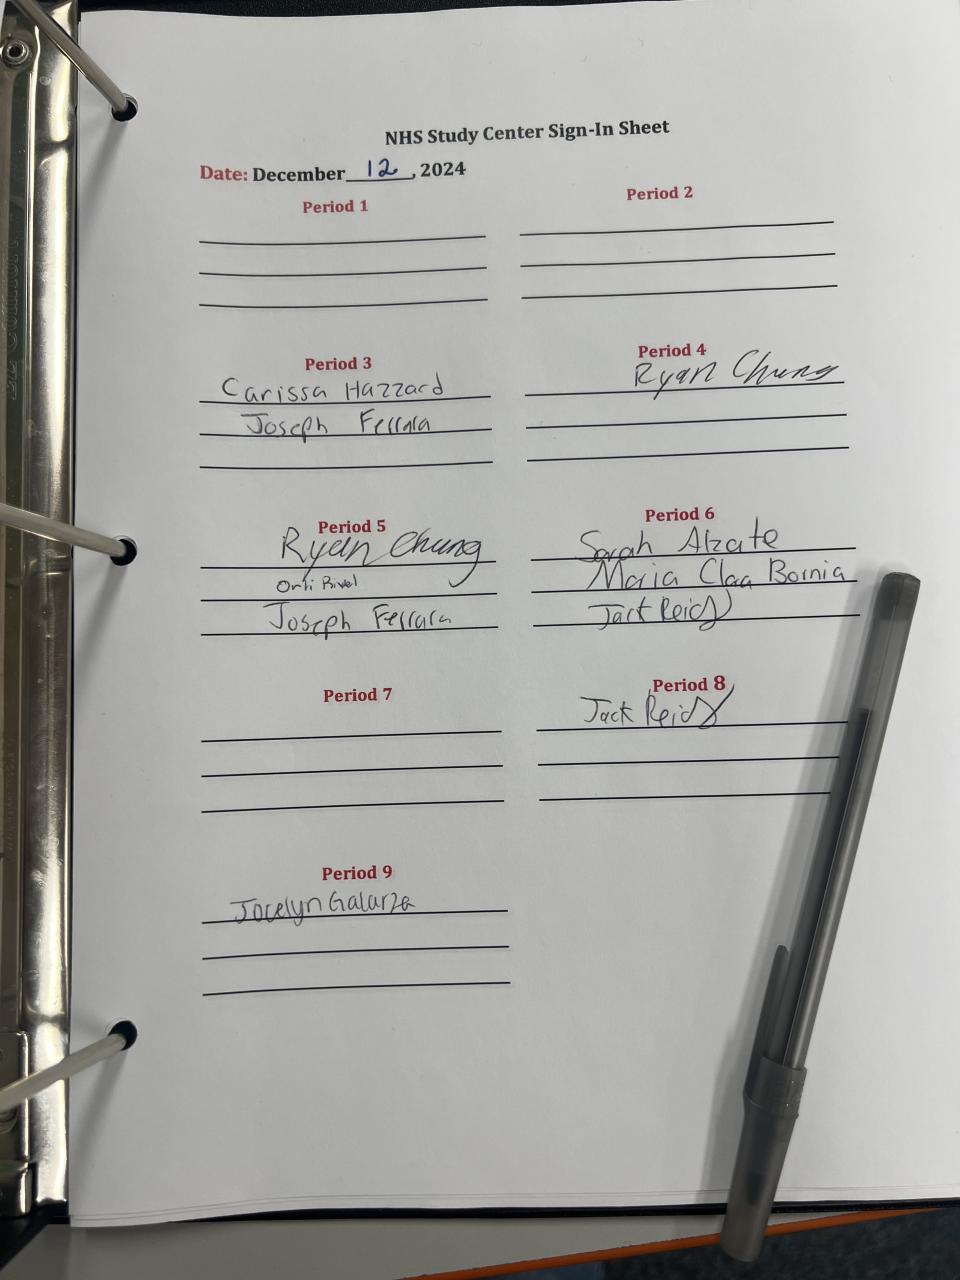 NHS Study Center Sign-In Sheet
Date: December 12, 2024
Period 1
Period 2
Period 3
Carissa Hazzard
Joseph Ferrara
Period 4
Ryan Chung
Period 5
Ryan Chung
Joseph Ferrara
Period 6
Sarah Alzate
Maria Claa Bornia
Jack Reid
Period 7
Period 8
Jack Reid
Period 9
Jocelyn Galarza